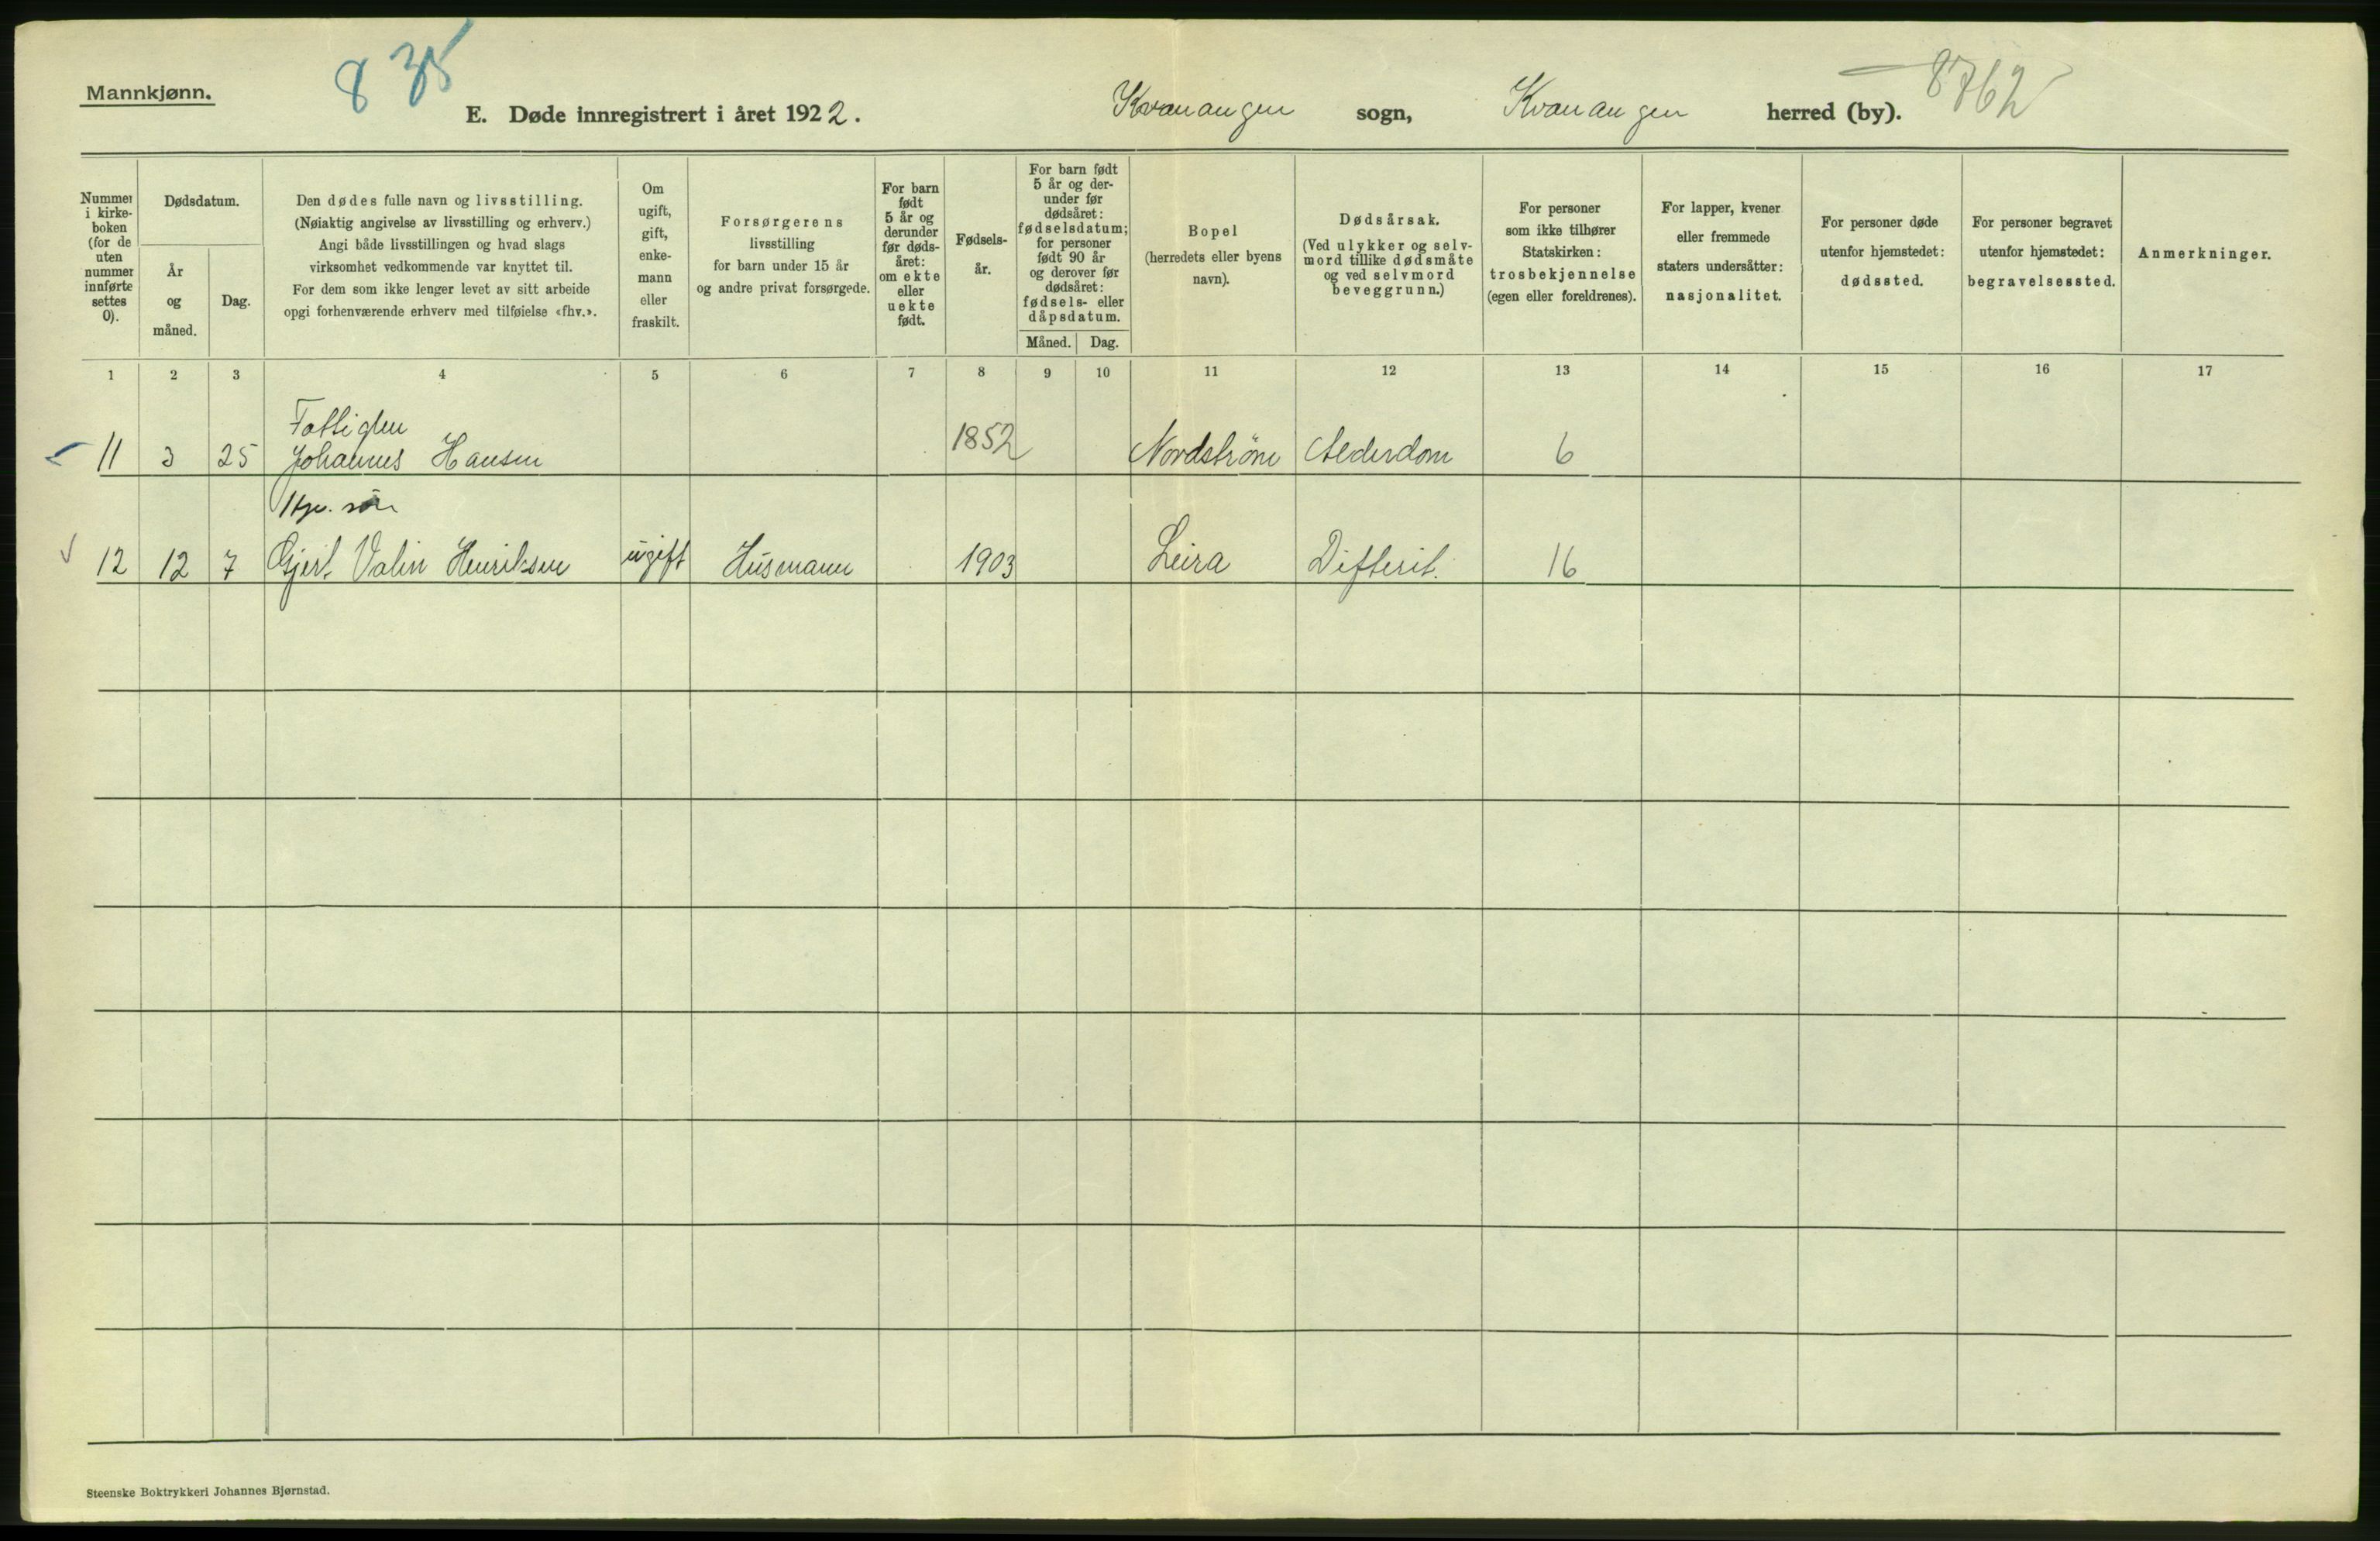 Mannkjønn.
8 35
E. Døde innregistrert i året 1922.
Kvænangen sogn, Kvænangen herred (by).
8762
Nummer i kirkeboken (for de uten nummer innførte settes 0).
Dødsdatum.
År og måned.
Dag.
Den dødes fulle navn og livsstilling.
(Nøiaktig angivelse av livsstilling og erhverv.)
Angi både livsstillingen og hvad slags
virksomhet vedkommende var knyttet til.
For dem som ikke lenger levet av sitt arbeide
opgi forhenværende erhverv med tilføielse «fhv.».
Om ugift, gift, enkemann eller fraskilt.
Forsørgerens
livsstilling
for barn under 15 år
og andre privat forsørgede.
For barn født 5 år og derunder før dødsåret: om ekte eller uekte født.
Fødselsår.
For barn født 5 år og derunder før dødsåret: fødselsdatum; for personer født 90 år og derover før dødsåret: fødsels- eller dåpsdatum.
Måned. Dag.
Bopel
(herredets eller byens
navn).
Dødsårsak.
(Ved ulykker og selvmord tillike dødsmåte og ved selvmord beveggrunn.)
For personer
som ikke tilhører
Statskirken:
trosbekjennelse
(egen eller foreldrenes).
For lapper, kvener
eller fremmede
staters undersåtter:
nasjonalitet.
For personer døde
utenfor hjemstedet:
dødssted.
For personer begravet
utenfor hjemstedet:
begravelsessted.
Anmerkninger.
1 2 3 4 5 6 7 8 9 10 11 12 13 14 15 16 17
Fattiglem
11 3 25 Johannes Hansen 1852 Nordstrøm Alderdom 6
søn
12 12 7 Gjert Valin Henriksen ugift Husmann 1903 Leira Difterit. 16
Steenske Boktrykkeri Johannes Bjørnstad.